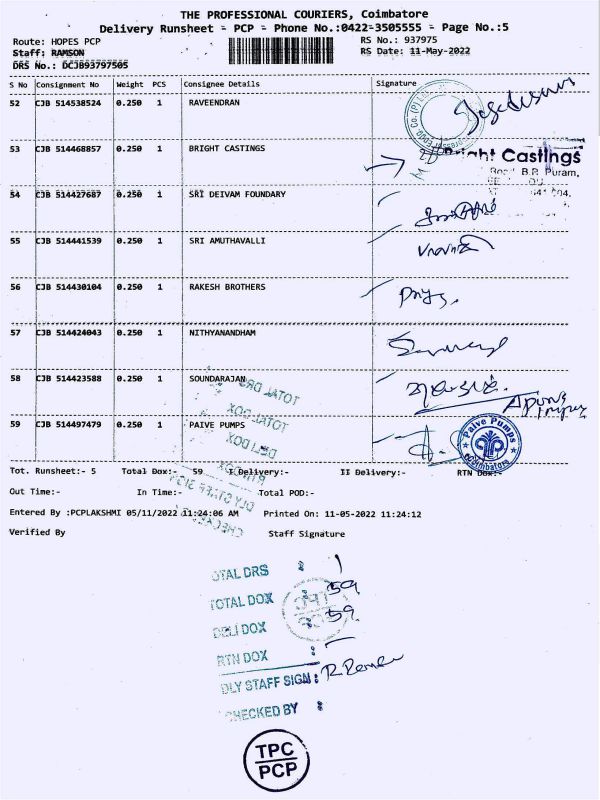 THE PROFESSIONAL COURIERS, Coimbatore
Delivery Runsheet - PCP - Phone No.:0422-3505555 - Page No.:5
Route: HOPES PCP RS No.: 937975
Staff: RAMSON RS Date: 11-May-2022
DRS No.: DCJB93797505
S No Consignment No Weight PCS Consignee Details Signature
52 CJB 514538524 0.250 1 RAVEENDRAN
53 CJB 514468857 0.250 1 BRIGHT CASTINGS
Bright Castings
Road B.R. Puram,
54 CJB 514427687 0.250 1 SRI DEIVAM FOUNDARY
55 CJB 514441539 0.250 1 SRI AMUTHAVALLI
56 CJB 514430104 0.250 1 RAKESH BROTHERS
57 CJB 514424043 0.250 1 NITHYANANDHAM
58 CJB 514423588 0.250 1 SOUNDARAJAN
59 CJB 514497479 0.250 1 PAIVE PUMPS
Paive Pumps
Coimbatore
Tot. Runsheet:- 5 Total Dox:- 59 I Delivery:- II Delivery:- RTN Dox:-
Out Time:- In Time:- Total POD:-
Entered By :PCPLAKSHMI 05/11/2022 11:24:06 AM Printed On: 11-05-2022 11:24:12
Verified By Staff Signature
TOTAL DRS
TOTAL DOX
DELI DOX
RTN DOX
DLY STAFF SIGN
CHECKED BY
OTAL DRS : 1
TOTAL DOX : 59
DELI DOX : 59
RTN DOX : -
DLY STAFF SIGN :
CHECKED BY :
TPC
PCP